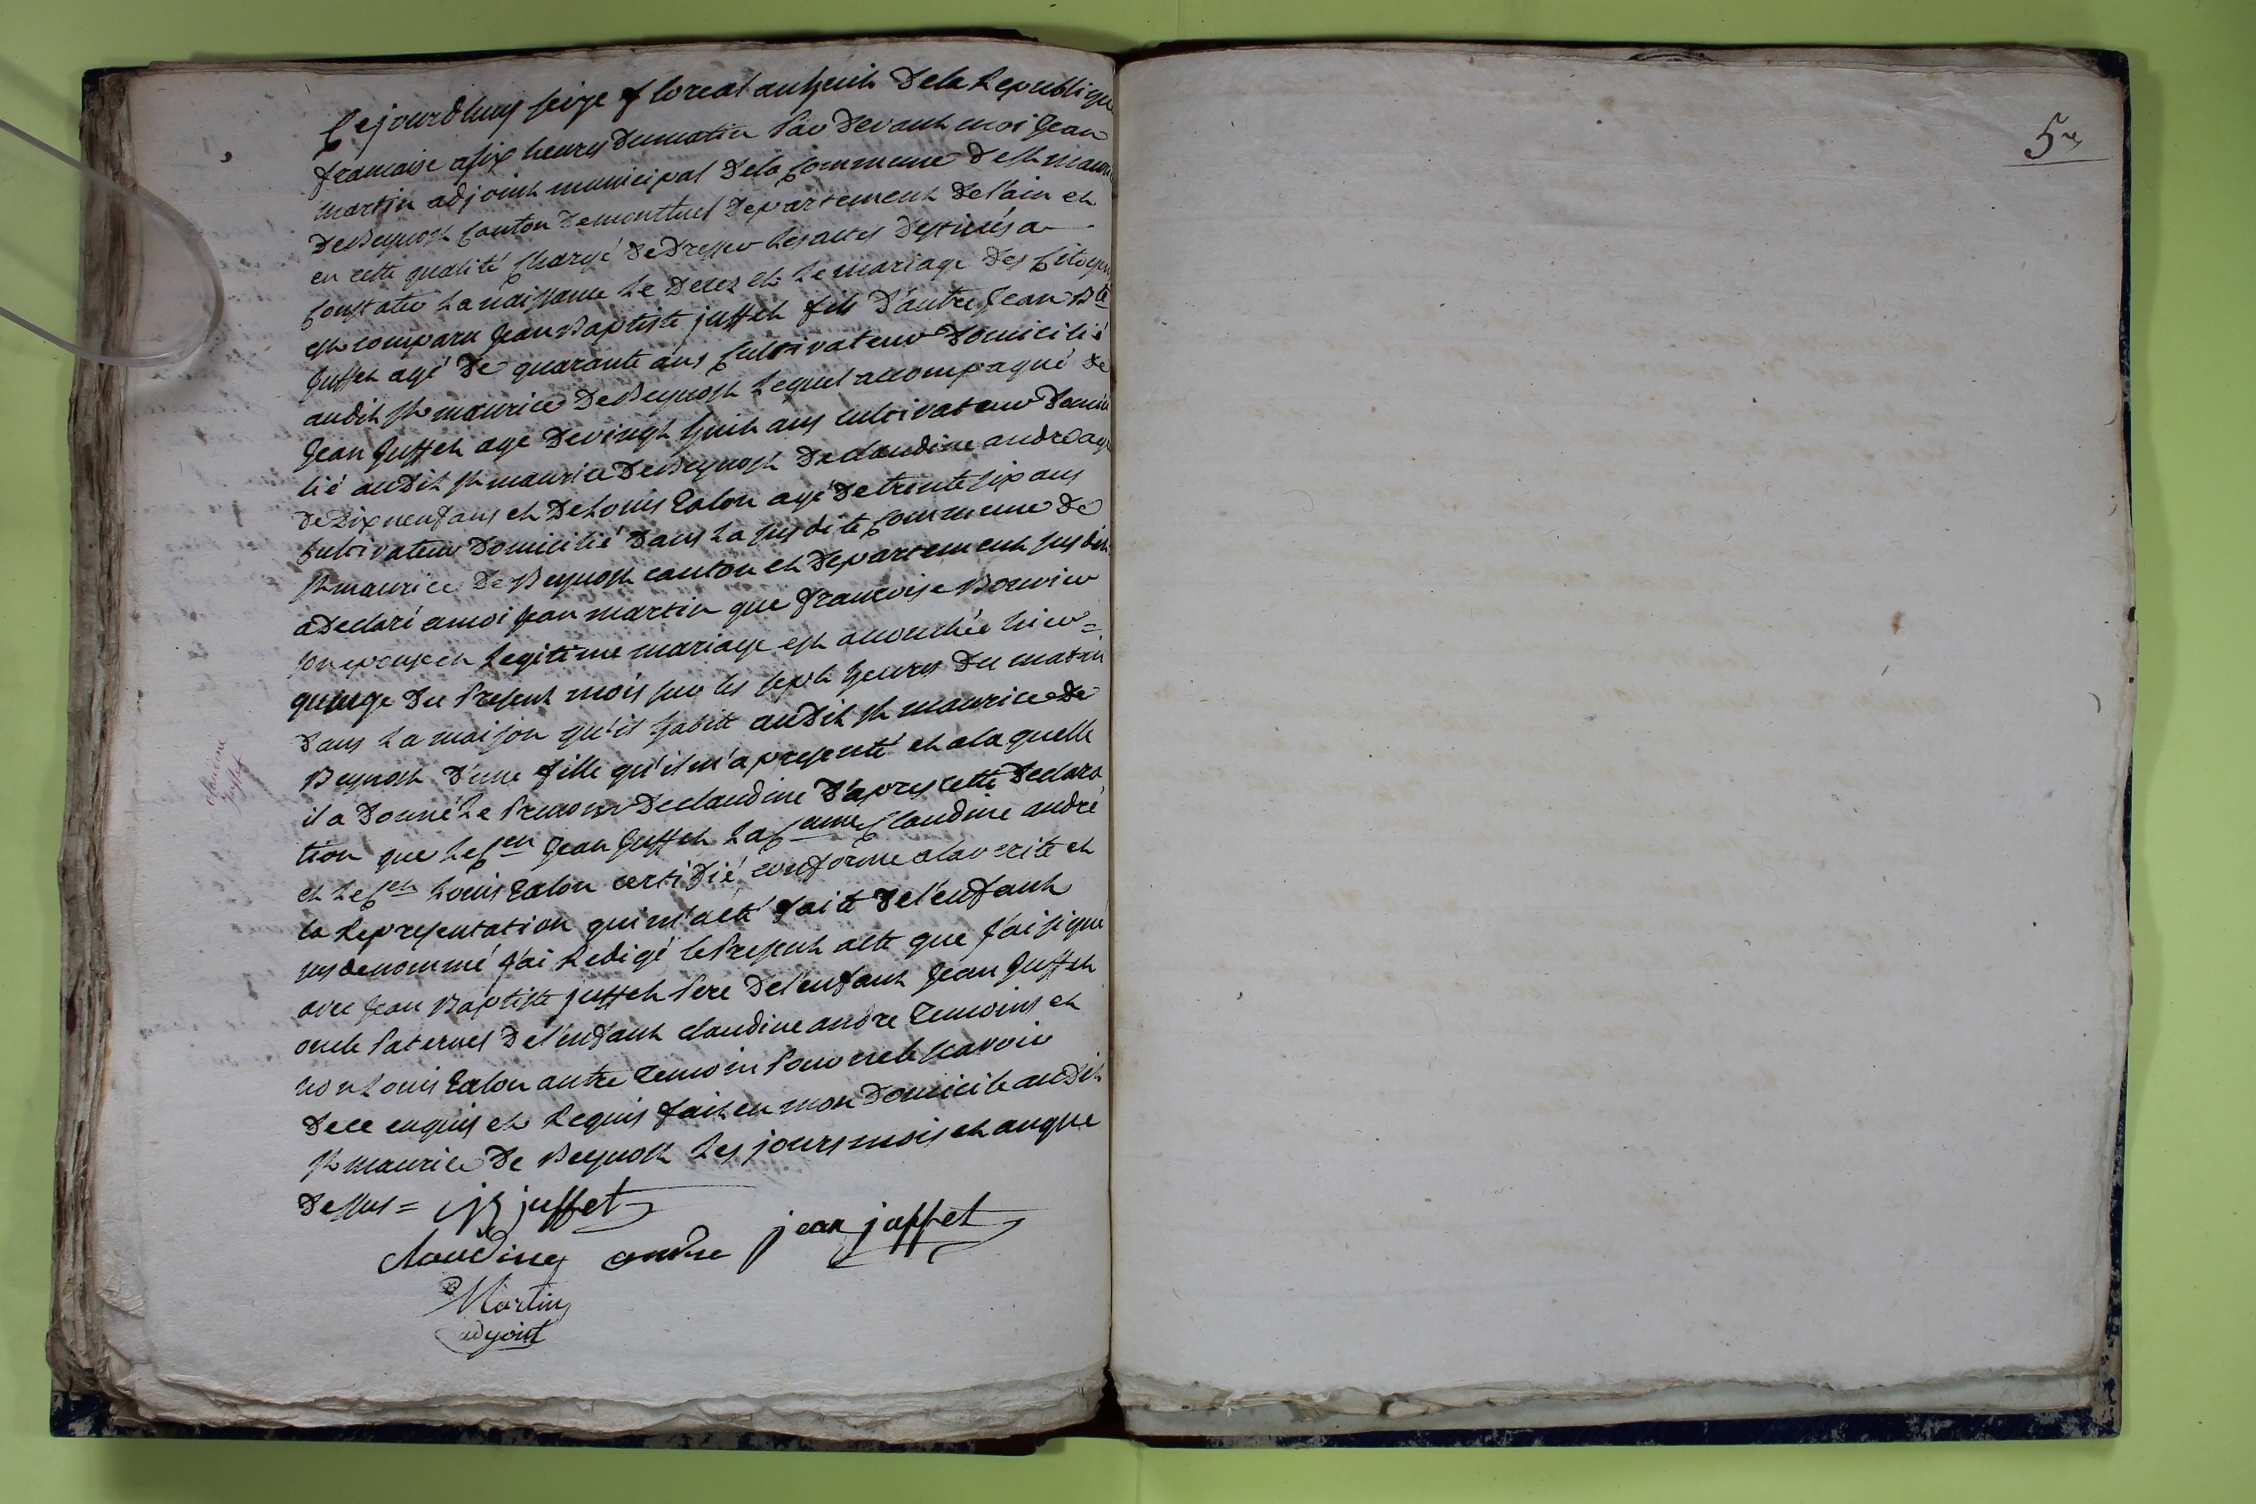 Cejourdhuy seize floreal an huit de la Republique
francaise a six heures du matin par devant moi Jean
martin adjoint municipal de la Commune de st maurice
de Beynost Canton de montluel departement de l'ain et
en cette qualité Chargé de dresser les actes destinés a
Constater la naissance le deces et le mariage des Citoyens
est comparu Jean Baptiste juffet fils d'autre Jean Bte
juffet agé de quarante ans Cultivateur domicilié
audit st maurice de Beynost lequel accompagné de
Jean Juffet age de vingt huit ans cultivateur domici
lié audit st maurice de Beynost de claudine andre agé
de dix neuf ans et de Louis talon agé de trente six ans
Cultivateur domicilié dans la susdite Commune de
st maurice de Beynost canton et departement susdit
a declaré a moi Jean martin que francoise Bouvier
son epouse en Legitime mariage est accouchée hier =
quinze du present mois sur les sept heures du matin
dans la maison qu'il habite audit st maurice de
Beynost d'une fille qu'il m'a presenté et a la quelle
il a donné le prenom de claudine d'apres cette declara
tion que le Cen Jean Juffet la Cenne Claudine andré
et le Cen Louis talon certifié conforme a la verité et
la Representation qui m'a été faite de l'enfant
susdenommé j'ai Redigé le present acte que j'ai signé
avec Jean Baptiste juffet pere de l'enfant Jean Juffet
oncle paternel de l'enfant claudine andre temoins et
non Louis talon autre temoin pour ne le scavoir
de ce enquis et Requis fait en mon domicile audit
st maurice de Beynost les jours mois et an que
dessus = JB juffet
claudine andre jean juffet
Martin
adjoint
claudine
juffet
5